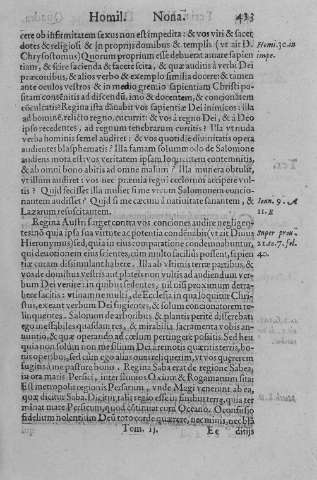 Homil. Nona. 433
cere ob infirmitatem sexus non est impedita: & vos viri & sacerdotes
& religiosi & in proprijs domibus & templis (vt ait D.
Chrysostomus) Quorum proprium esse debuerat amare sapientiam,
& scire facienda & facere scita, & quæ audins à verbi Dei
præconibus, & alios verbo & exemplo similia docere: & tamen
ante oculos vestros & in medio gremio sapientiam Christi positam
contēnitis ad discendū, imò & docentem, & concionātem
Regina ista dānabit vos sapientiæ Dei inimicos: illa
ad hominē, relicto regno, cucurrit: & vos à regno Dei, & à Deo
ipso recedentes, ad regnum tenebrarum curritis? Illa vt nuda
verba hominis semel audiret: & vos quotidie diuinitatis opera
audientes blasphematis? Illa famam solummodo de Salomone
audiens mota est: vos veritatem ipsam loquentem contemnitis,
& ab omni bono abitis ad omne malum? Illa munera obtulit,
vt illum audiret: vos nec præmia regni cœlorum accipere vultis?
Quid fecisset illa mulier si me vectum Salomonem concionantem
audisset? Quid si me cæcum à natiuitate sanantem, &
Lazarum resuscitantem.
Regina Austri surget contra vos conciones audire negligentes:
non quia ipsa sua virtute ac potentia condēnabit vt ait Diuus
Hieronymus) sed, quia in eius comparatione condemnabuntur,
qui deuotionem eius scientes, cum multo facilius possent, sapientiæ
curam dissimulant habere. Illa ab vltimis terræ partibus, &
vos de domibus vestris aut plateis non vultis ad audiendum verbum
Dei venire: in quibus sedentes, vtilibus proximum
facitis: vtinam ne multi, de Ecclesia in qua loquitur Christus,
exeant verbum Dei fugientes, & solum concionatorem relinquentes.
Salomon de arboribus & plantis perite differebat:
ego ineffabiles quasdam res, & mirabilia sacramenta vobis annuntio,
& quæ operando ad cœlum pertingere possitis. Sed heu
quia non solùm non me filium Dei à remotis quæritis terris, bonis
operibus, sed cùm ego alias oues reliquerim, vt vos quærerem
fugitis à me pastore bono. Regina Saba erat de regione Sabea,
in ora maris Persici, inter fluuios &
Est metropolis regionis Persarum, vnde Magi venerunt ab ea,
quæ dicitur Saba. Dicitur talis regio esse in finibus terræ, quia terminat
mare Persicum, quod cōtinuatur cum Oceano. O confusio
fidelium nolentium Deū toto corde quærere, nec minus, nec blā
Tom. ij. Ee ditijs
Homi. 30. in
impe.
Ioan. 9. A
11. E
Super prou.
21. to. 7. fol.
40.